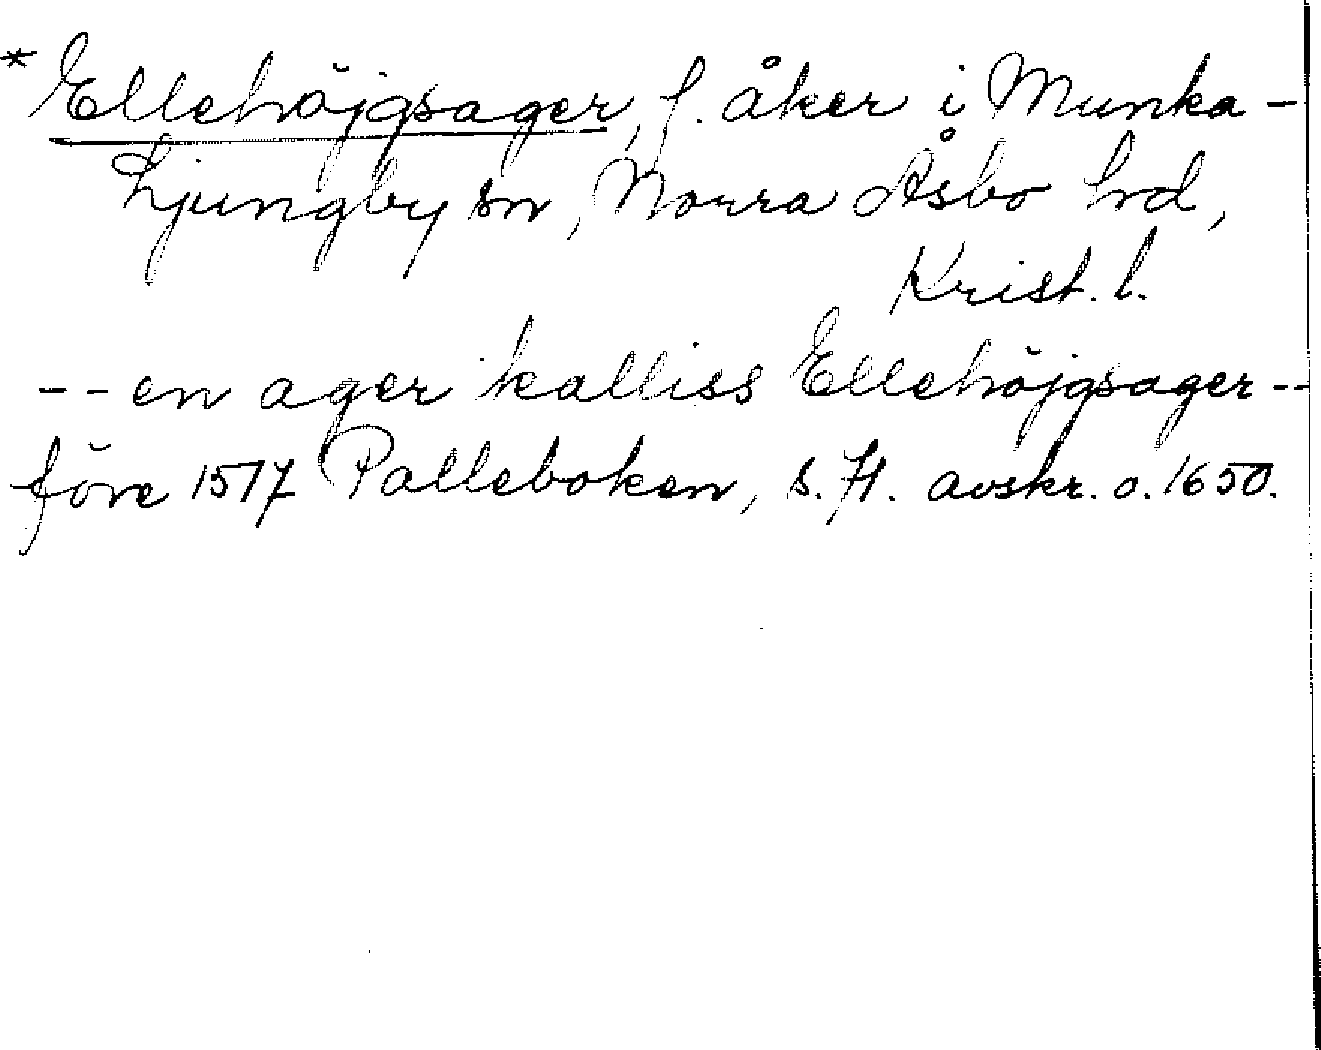 *Ellehöjgsager, f. åker i Munka-
Ljungby sn, Norra Åsbo hd,
Krist. l.
-- en ager kalliss Ellehöjgsager --
före 1517 Palleboken, s. 71. avskr. o. 1650.